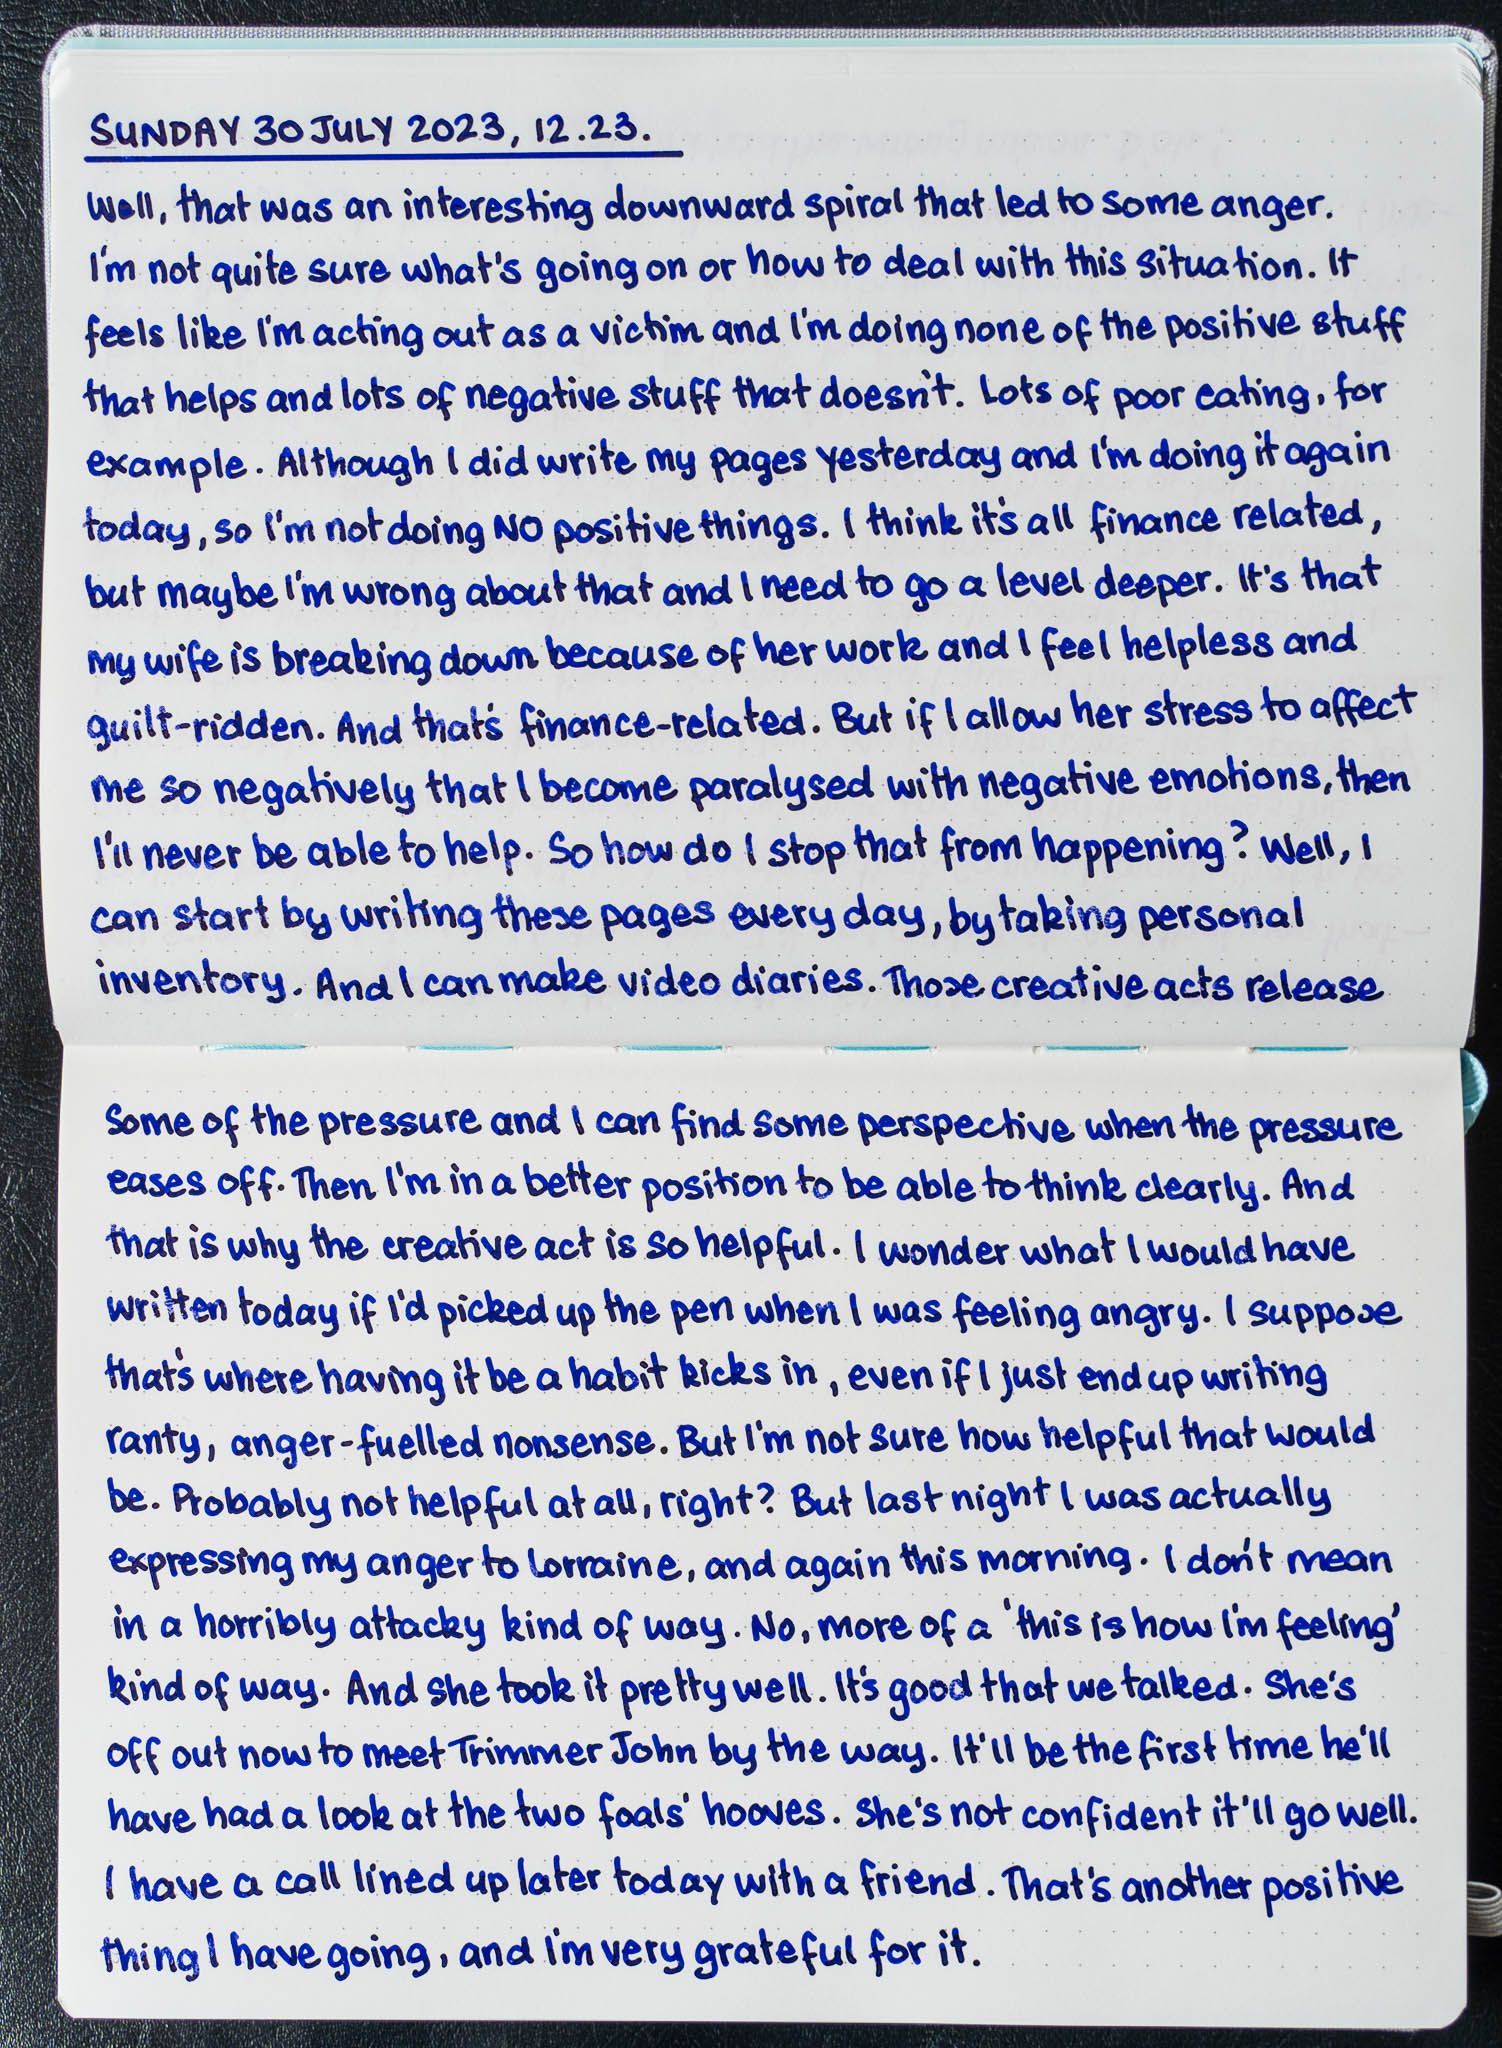 SUNDAY 30 JULY 2023, 12.23.
Well, that was an interesting downward spiral that led to some anger.
I'm not quite sure what's going on or how to deal with this situation. It
feels like I'm acting out as a victim and I'm doing none of the positive stuff
that helps and lots of negative stuff that doesn't. Lots of poor eating, for
example. Although I did write my pages yesterday and I'm doing it again
today, so I'm not doing NO positive things. I think it's all finance related,
but maybe I'm wrong about that and I need to go a level deeper. It's that
my wife is breaking down because of her work and I feel helpless and
guilt-ridden. And that's finance-related. But if I allow her stress to affect
me so negatively that I become paralysed with negative emotions, then
I'll never be able to help. So how do I stop that from happening? Well, I
can start by writing these pages every day, by taking personal
inventory. And I can make video diaries. Those creative acts release
some of the pressure and I can find some perspective when the pressure
eases off. Then I'm in a better position to be able to think clearly. And
that is why the creative act is so helpful. I wonder what I would have
written today if I'd picked up the pen when I was feeling angry. I suppose
that's where having it be a habit kicks in, even if I just end up writing
ranty, anger-fuelled nonsense. But I'm not sure how helpful that would
be. Probably not helpful at all, right? But last night I was actually
expressing my anger to Lorraine, and again this morning. I don't mean
in a horribly attacky kind of way. No, more of a 'this is how I'm feeling'
kind of way. And she took it pretty well. It's good that we talked. She's
off out now to meet Trimmer John by the way. It'll be the first time he'll
have had a look at the two foals' hooves. She's not confident it'll go well.
I have a call lined up later today with a friend. That's another positive
thing I have going, and I'm very grateful for it.